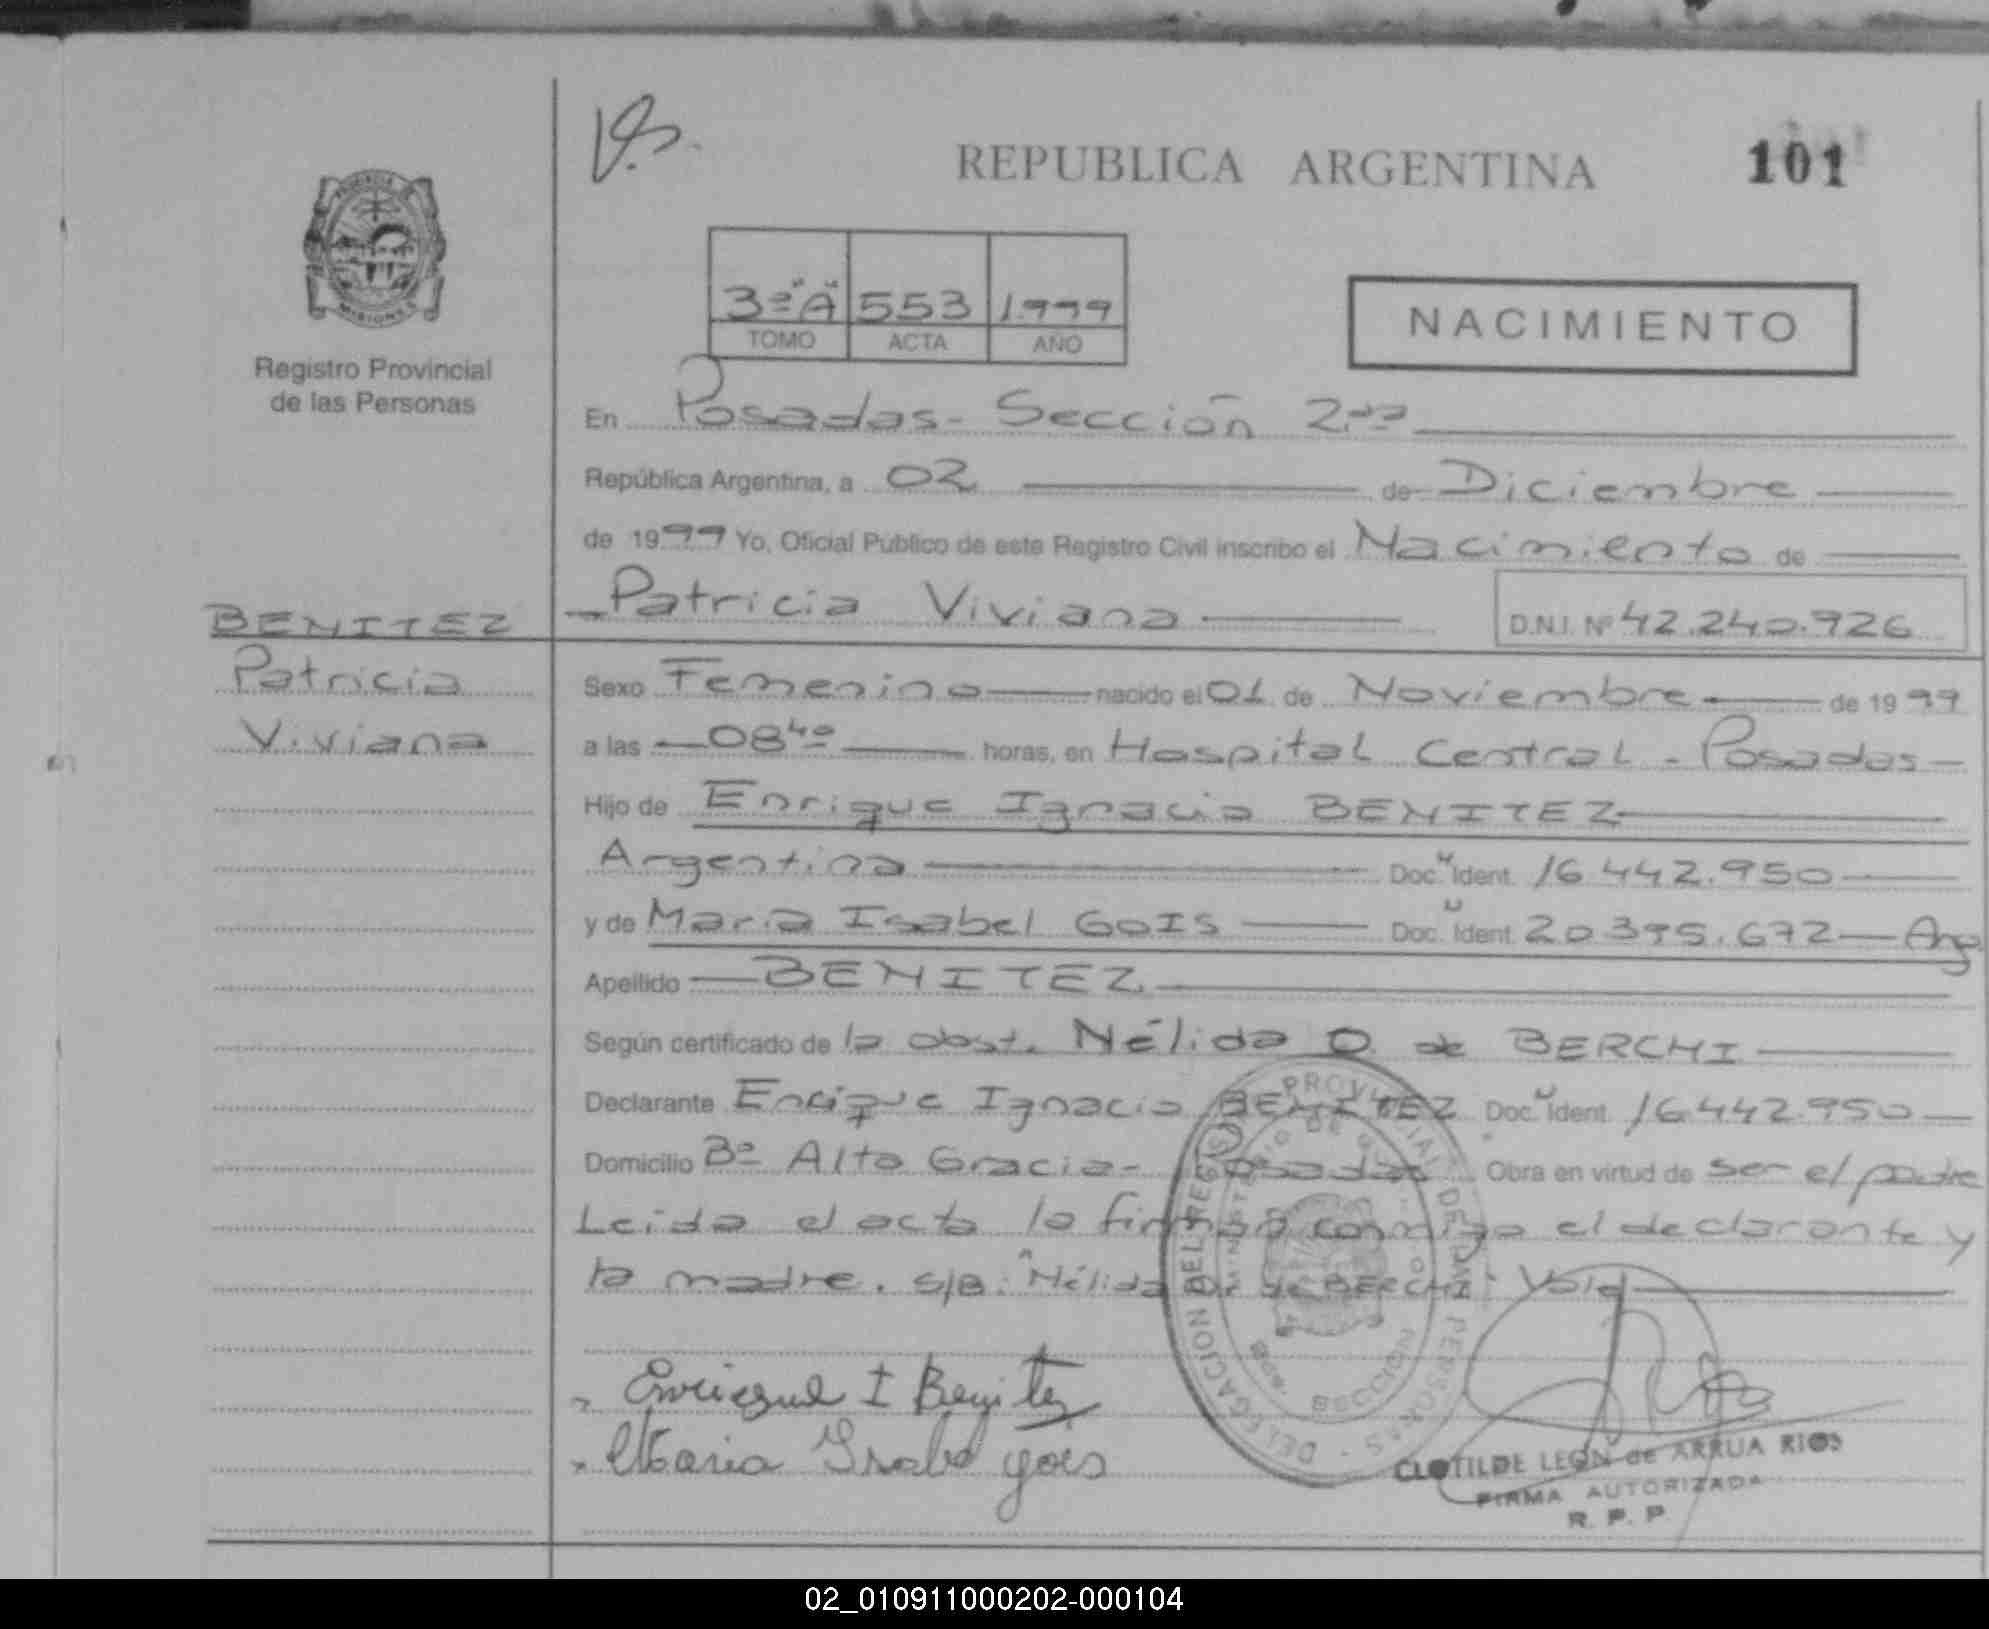 REPUBLICA ARGENTINA
101
3º "A" 553 1.999
TOMO ACTA AÑO
NACIMIENTO
PROVINCIA
MISIONES
Registro Provincial
de las Personas
En Posadas - Sección 2da
República Argentina, a 02 de Diciembre
de 1999 Yo, Oficial Público de este Registro Civil inscribo el Nacimiento de
BENITEZ
Patricia Viviana D.N.I. Nº 42.240.926
Patricia
Viviana
Sexo Femenino nacido el 01 de Noviembre de 1999
a las 08 40 horas, en Hospital Central - Posadas -
Hijo de Enrique Ignacio BENITEZ
Argentina Doc. Ident. 16.442.950
y de Maria Isabel GOIS Doc. Ident. 20.395.672 - Arg.
Apellido BENITEZ
Según certificado de la obst. Nélida O. de BERCHI
Declarante Enrique Ignacio BENITEZ Doc. Ident. 16.442.950
Domicilio Bº Alto Gracia - Posadas Obra en virtud de ser el padre
Leida el acta la firman conmigo el declarante y
la madre. S/B: "Nélida O. de BERCHI" Vale
Enrique I Benitez
Maria Isabel gois
DELEGACION DEL REGISTRO PROVINCIAL DE LAS PERSONAS -
MINISTERIO DE GOBIERNO
CLOTILDE LEON de ARRUA RIOS
FIRMA AUTORIZADA
R. P. P.
02_010911000202-000104